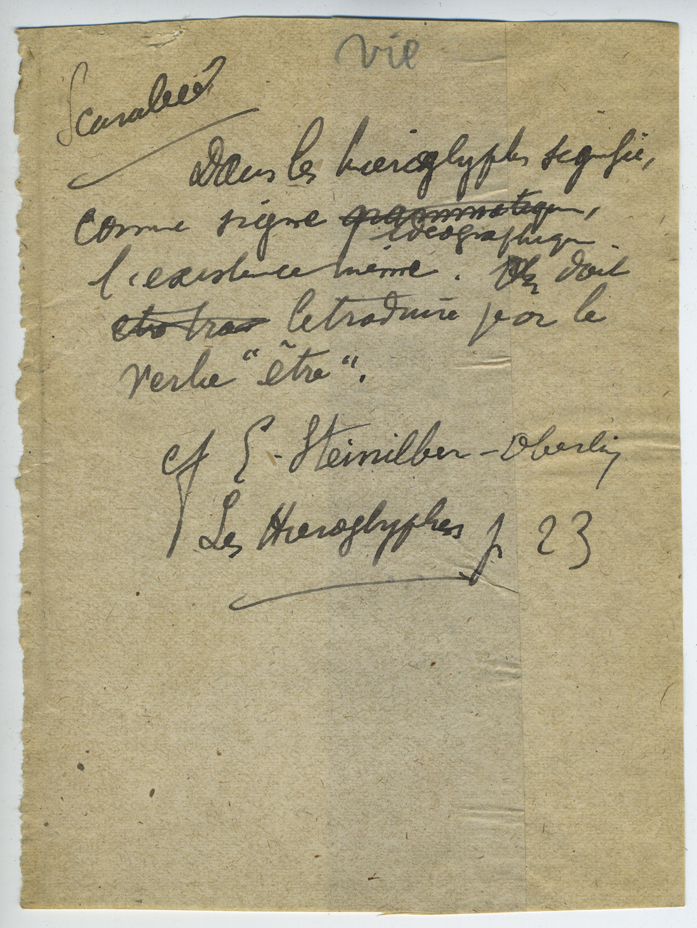 vie
Scarabée
Dans les hieroglyphes signifie,
comme signe grammatique,
idéographique
l'existence même. On doit
etre tra letraduire par le
verbe "être".
cf E-Steinilber-Oberlin
Les Hieroglyphes p 23